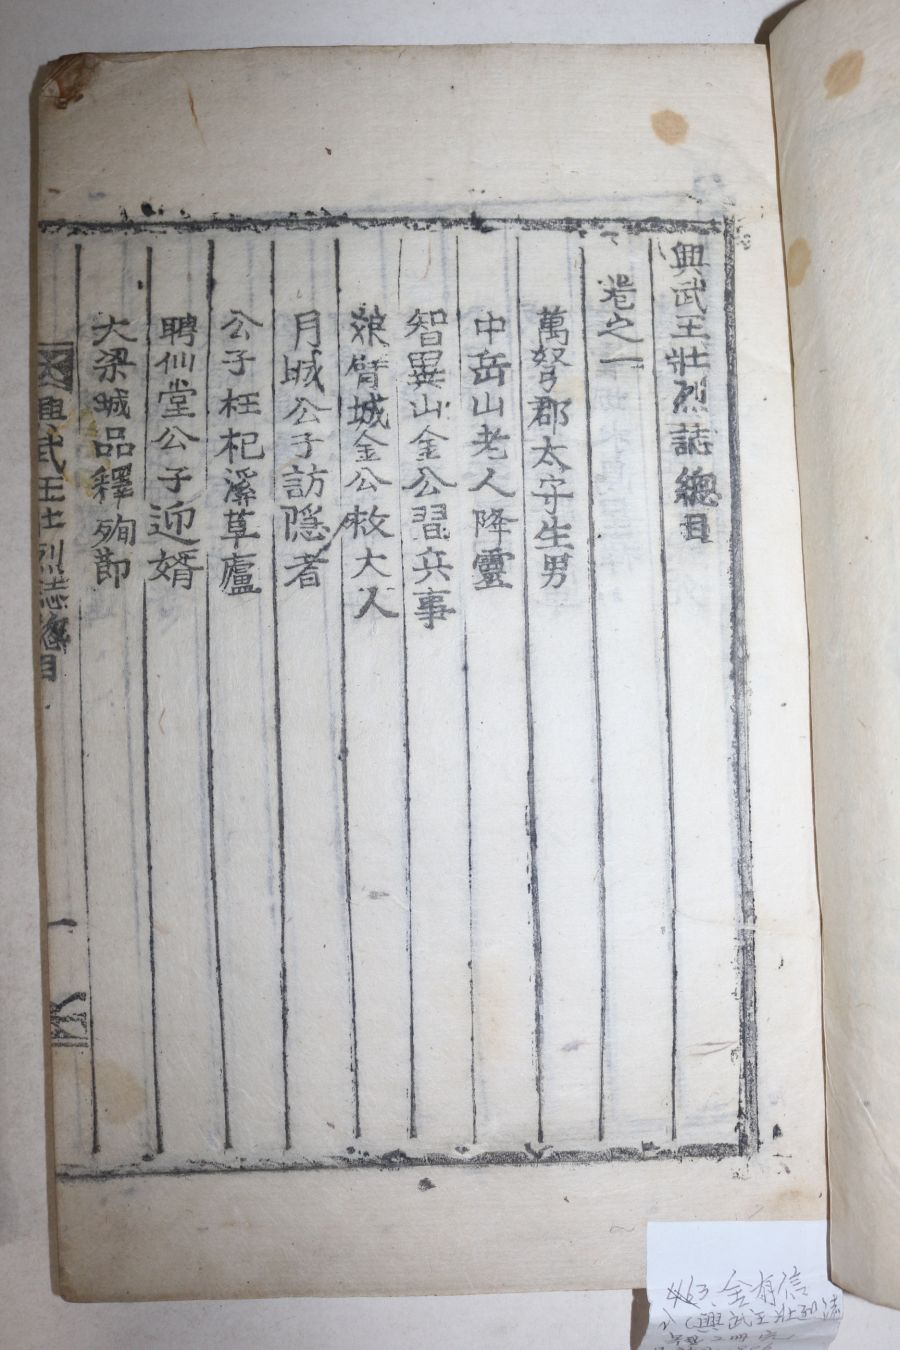 興武王壯烈誌總目
卷之一
萬弩郡太守生男
中岳山老人降靈
智異山金公習兵事
娘臂城金公救大人
月城公子訪隱者
公子枉杞溪草廬
聘仙堂公子迎婿
大梁城品釋殉節
興武王壯烈誌總目
一
463. 金有信
(興武王壯烈誌